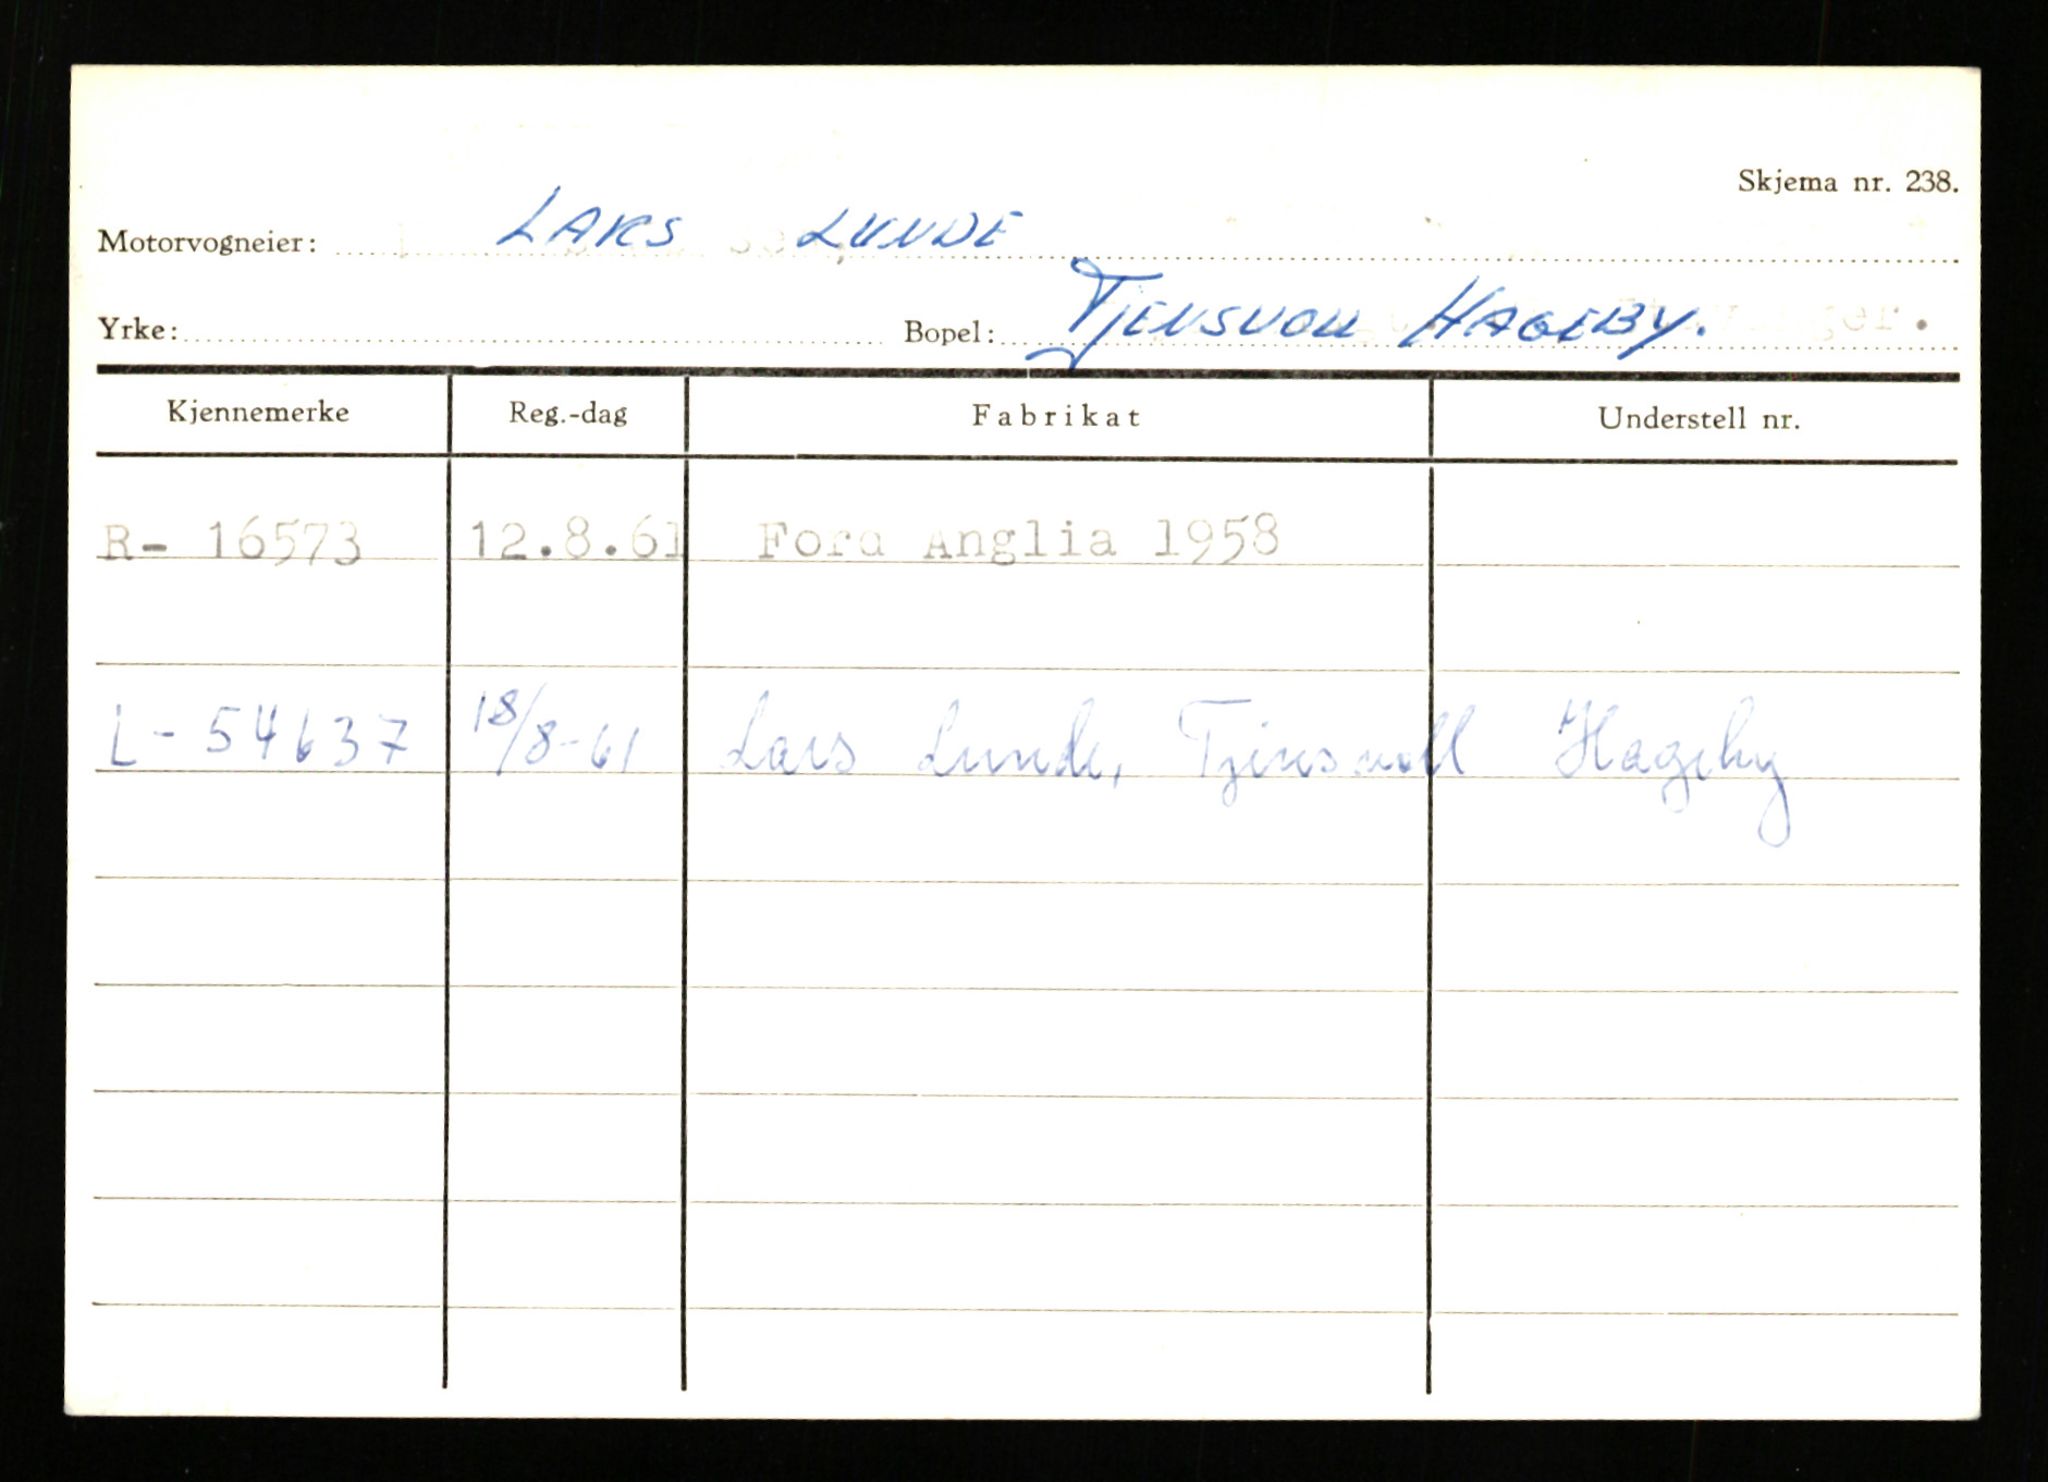 Skjema nr. 238.
Motorvogneier: LARS LUNDE
Yrke: Bopel: TJENSVOLL HAGEBY.
Kjennemerke Reg.-dag Fabrikat Understell nr.
R- 16573 12.8.61 Ford Anglia 1958
L- 54637 18/8-61 Lars Lunde, Tjensvoll Hageby